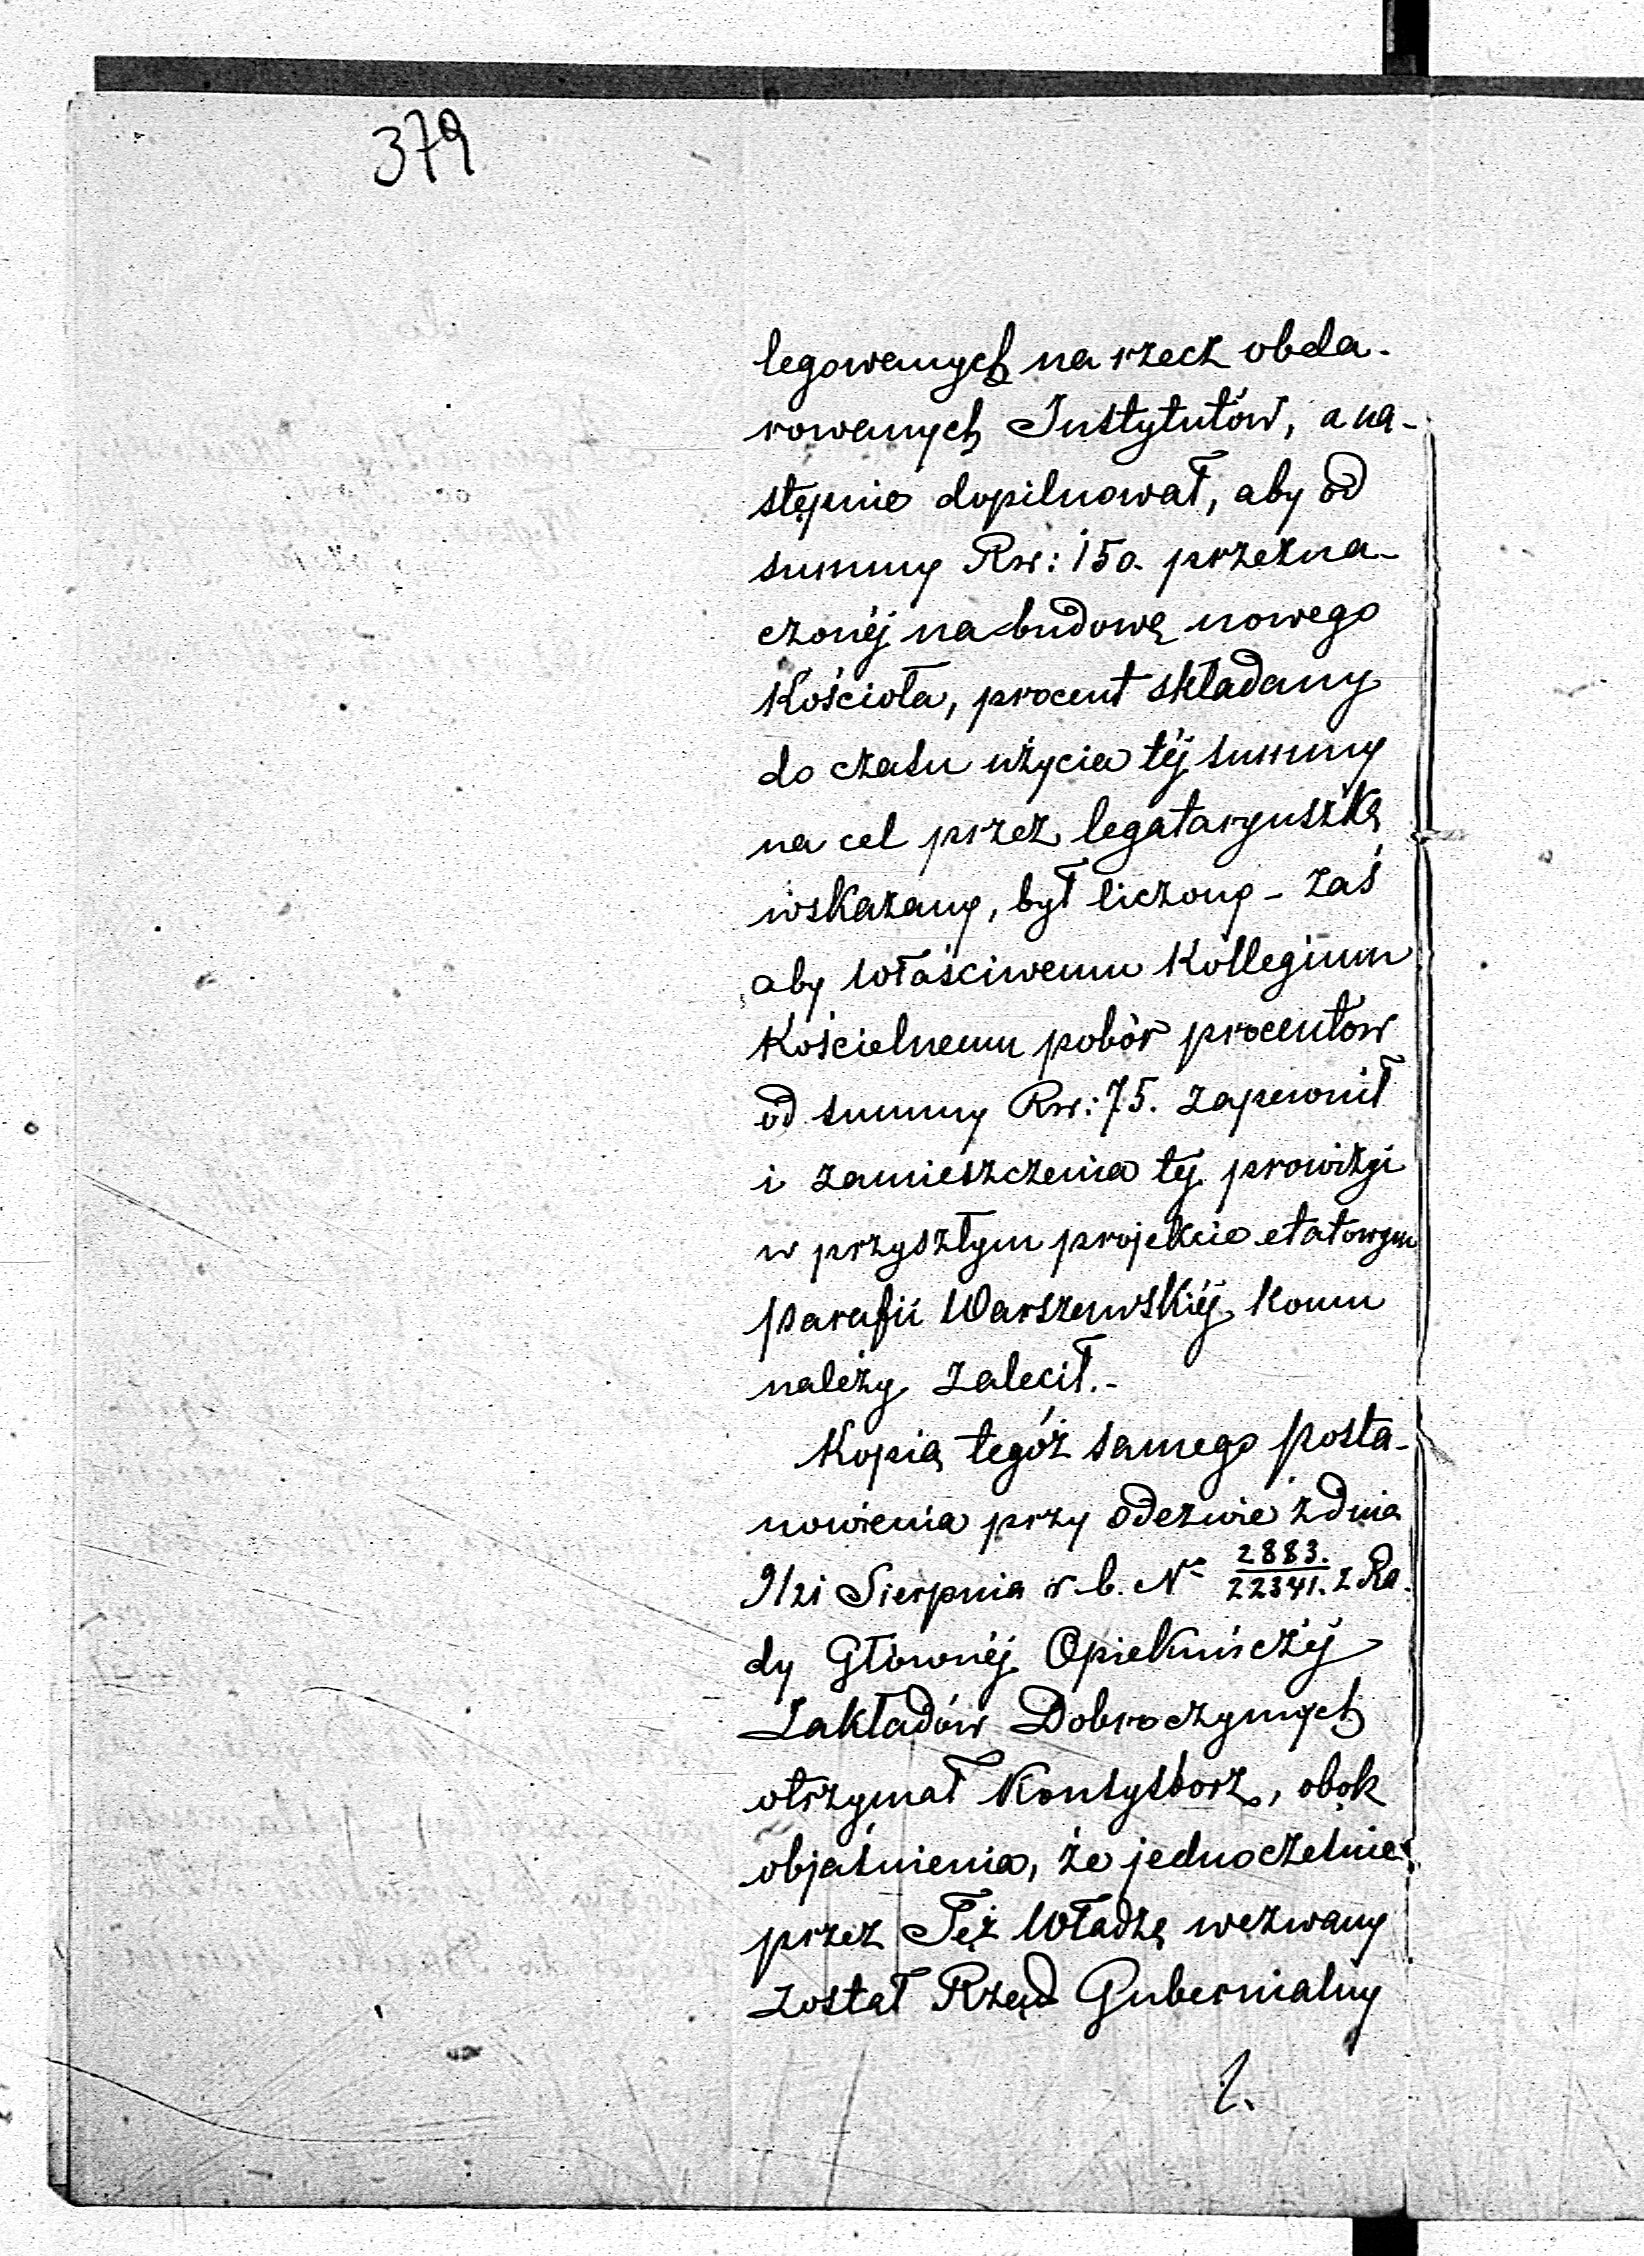 379
legowanych na rzecz obda-
rowanych Instytutów, a na-
stępnie dopilnował, aby od
summy Rsr: 150. przezna-
czonéj na budowę nowego
Kościoła, procent składany
do czasu użycia téj summy
na cel przez legataryuszkę
wskazany, był liczony - zaś
aby właściwemu Kollegium
Kościelnemu pobór procentów
od summy Rsr: 75. zapewnił
i zamieszczenia téj prowizyi
w przyszłym projekcie etatowym
parafii Warszawskiéj komu
należy zalecił.-
Kopią tegóż samego posta-
nowienia przy odezwie z dnia
9/21 Sierpnia r. b. No 2883./22341. z Ra-
dy Głównéj Opiekuńczéj
Zakładów Dobroczynnych
otrzymał Konsystorz, obok
objaśnienia, że jednocześnie
przez Tęż Władzę wezwany
został Rząd Gubernialny